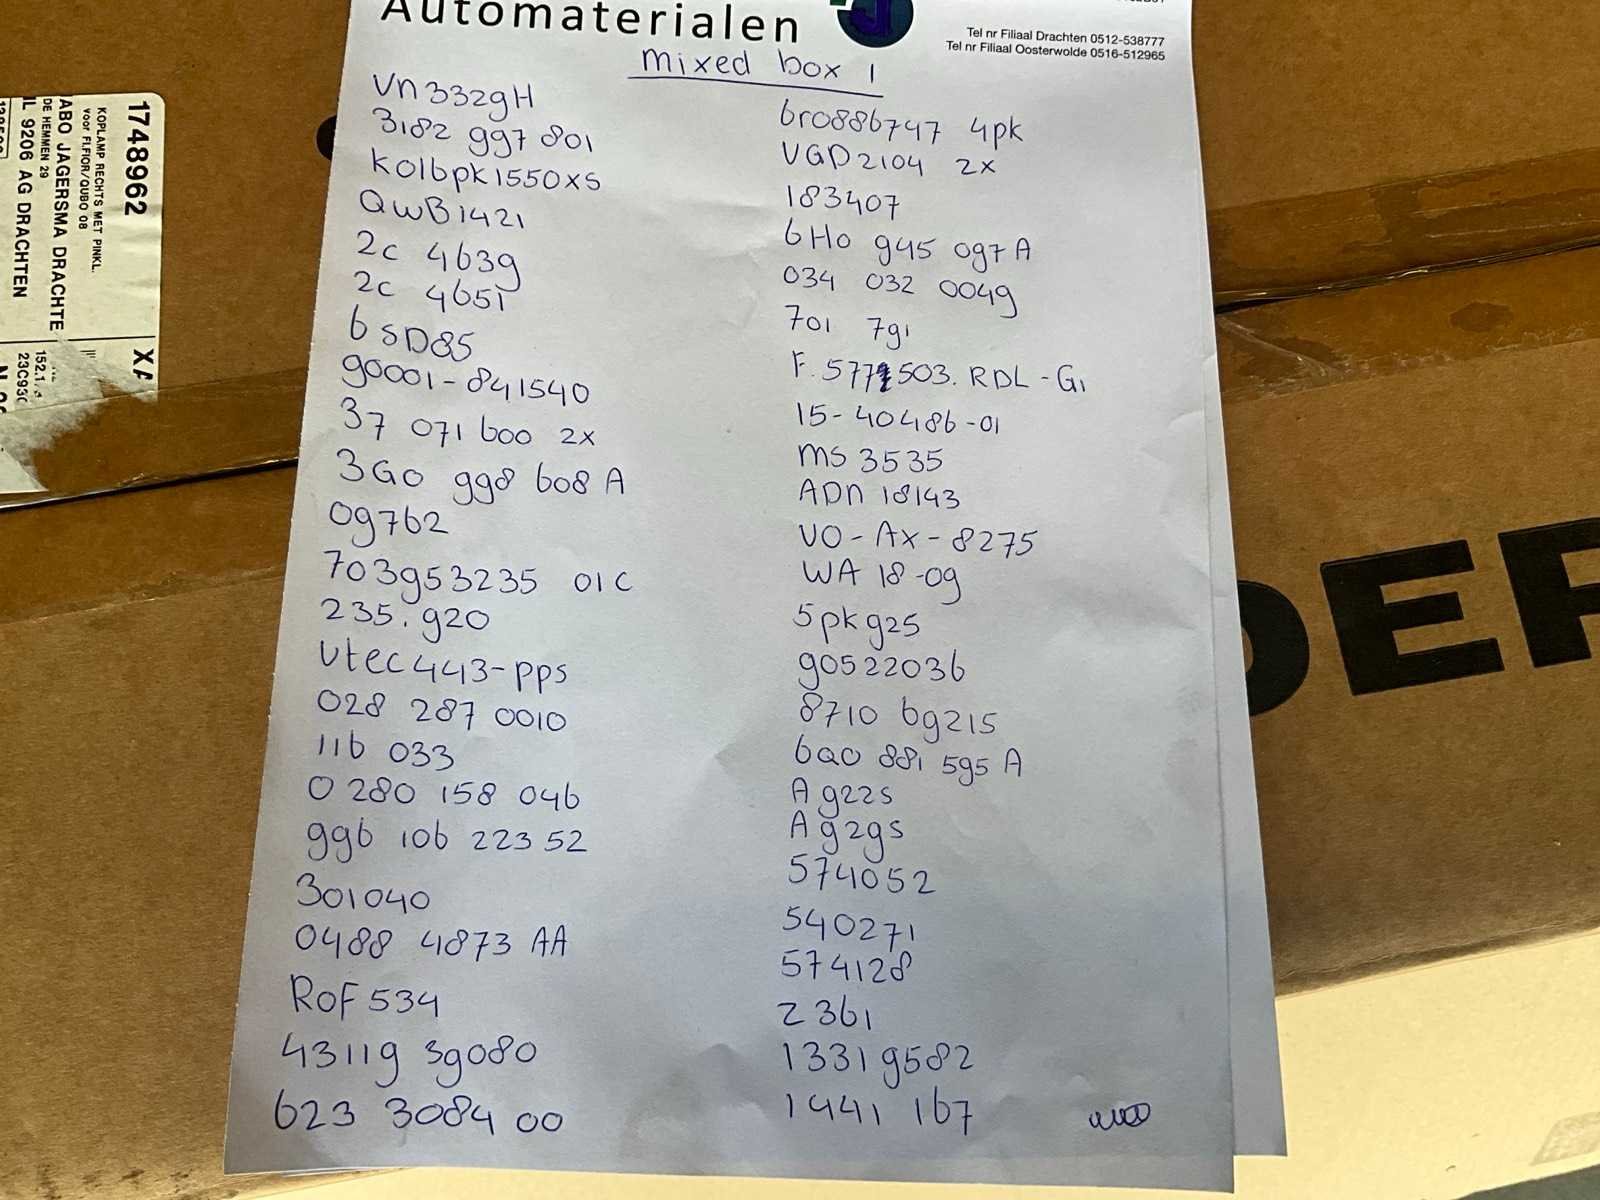 Automaterialen
Tel nr Filiaal Drachten 0512-538777
Tel nr Filiaal Oosterwolde 0516-512965
mixed box 1
Vn332gH
3182 997 801
K016pk1550xs
QWB1421
2c 4639
2c 4651
6SD85
90001-841540
37 071 600 2x
3G0 998 608 A
09762
703953235 01C
235.920
Vtec443-pps
028 287 0010
116 033
0 280 158 046
996 106 223 52
301040
0488 4873 AA
ROF534
43119 39080
623 3084 00
6r0886747 4pk
VGD2104 2x
183407
6H0 945 097 A
034 032 0049
701 791
F.577503.RDL-G1
15-40486-01
ms 3535
ADN 18143
VO-AX-8275
WA 18-09
5pk925
90522036
8710 69215
6Q0 881 595 A
A 922s
A 929s
574052
540271
574128
2361
13319582
1441 167
1748962
KOPLAMP RECHTS MET PINKL.
voor FI.FIOR/QUBO 08
ABO JAGERSMA DRACHTE
DE HEMMEN 29
L 9206 AG DRACHTEN
XA
152.1
23C93
DER